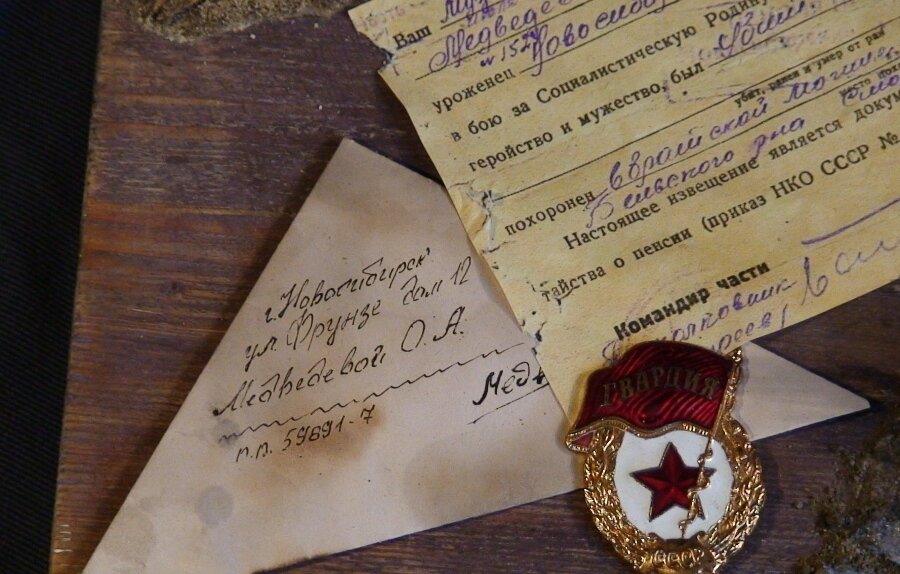 Ваш
Медведе
уроженец Новосиби
в бою за Социалистическую Родину
геройство и мужество, был убит
убит, ранен и умер от ран
похоронен в братской могиле
Бельского р-на Смо
Настоящее извещение является докум
тайства о пенсии (приказ НКО СССР №
Командир части
г. Новосибирск
ул. Фрунзе дом 12
Медведевой О.А.
п.п. 59891-7
Медв
ГВАРДИЯ
СССР